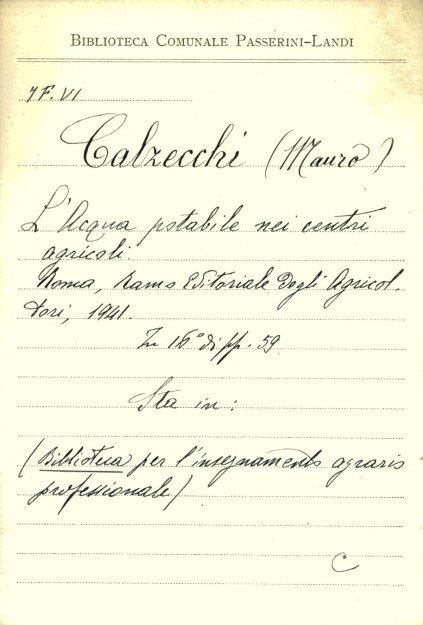 BIBLIOTECA COMUNALE PASSERINI-LANDI
7 F. VI
Calzecchi (Mauro)
L'Acqua potabile nei centri
agricoli.
Roma, Ramo Editoriale Degli Agricol-
tori, 1941.
In 16° di pp. 59
Sta in:
(Biblioteca per l'insegnamento agrario
professionale)
C